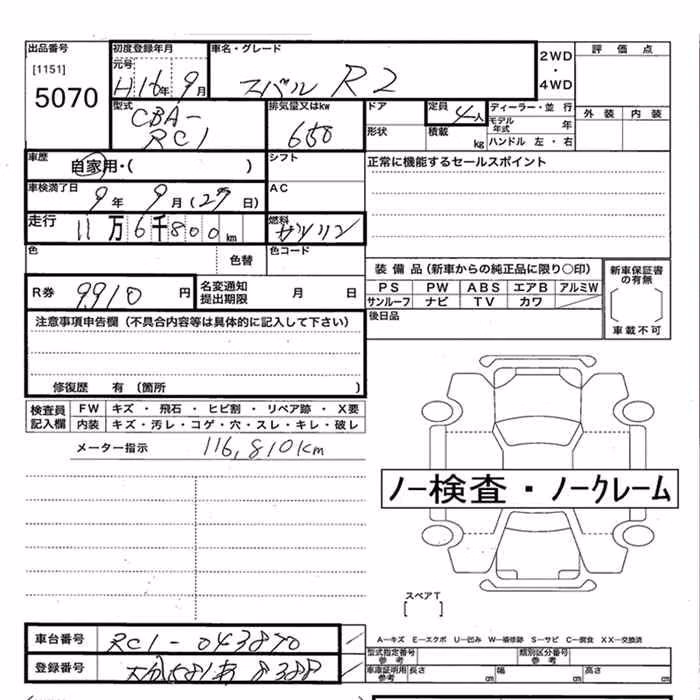 出品番号
[1151]
5070
初度登録年月
元号
H16年9月
車名・グレード
スバル R2
2WD
・
4WD
評価点
外装 内装
型式
CBA-
RC1
排気量又はkw
ドア
定員 4人
ディーラー・並行
モデル年式 年
形状
積載 kg
ハンドル 左・右
車歴
自家用・( )
シフト
正常に機能するセールスポイント
車検満了日
9年 9月(29日)
AC
走行
11万6千800km
燃料
ガソリン
色
色替
色コード
装備品(新車からの純正品に限り○印)
PS PW ABS エアB アルミW
サンルーフ ナビ TV カワ
新車保証書の有無
車載不可
R券 9910円
名変通知提出期限 月 日
後日品
注意事項申告欄(不具合内容等は具体的に記入して下さい)
修復歴 有(箇所 )
検査員記入欄
FW キズ・飛石・ヒビ割・リペア跡・X要
内装 キズ・汚レ・コゲ・穴・スレ・キレ・破レ
メーター指示 116,810km
ノー検査・ノークレーム
スペアT
[ ]
A-キズ E-エクボ U-凹み W-補修跡 S-サビ C-腐食 XX-交換済
車台番号 RC1-043870
型式指定番号
参考
類別区分番号
参考
登録番号 大分581 8388
車庫証明用
参考
長さ cm 幅 cm 高さ cm